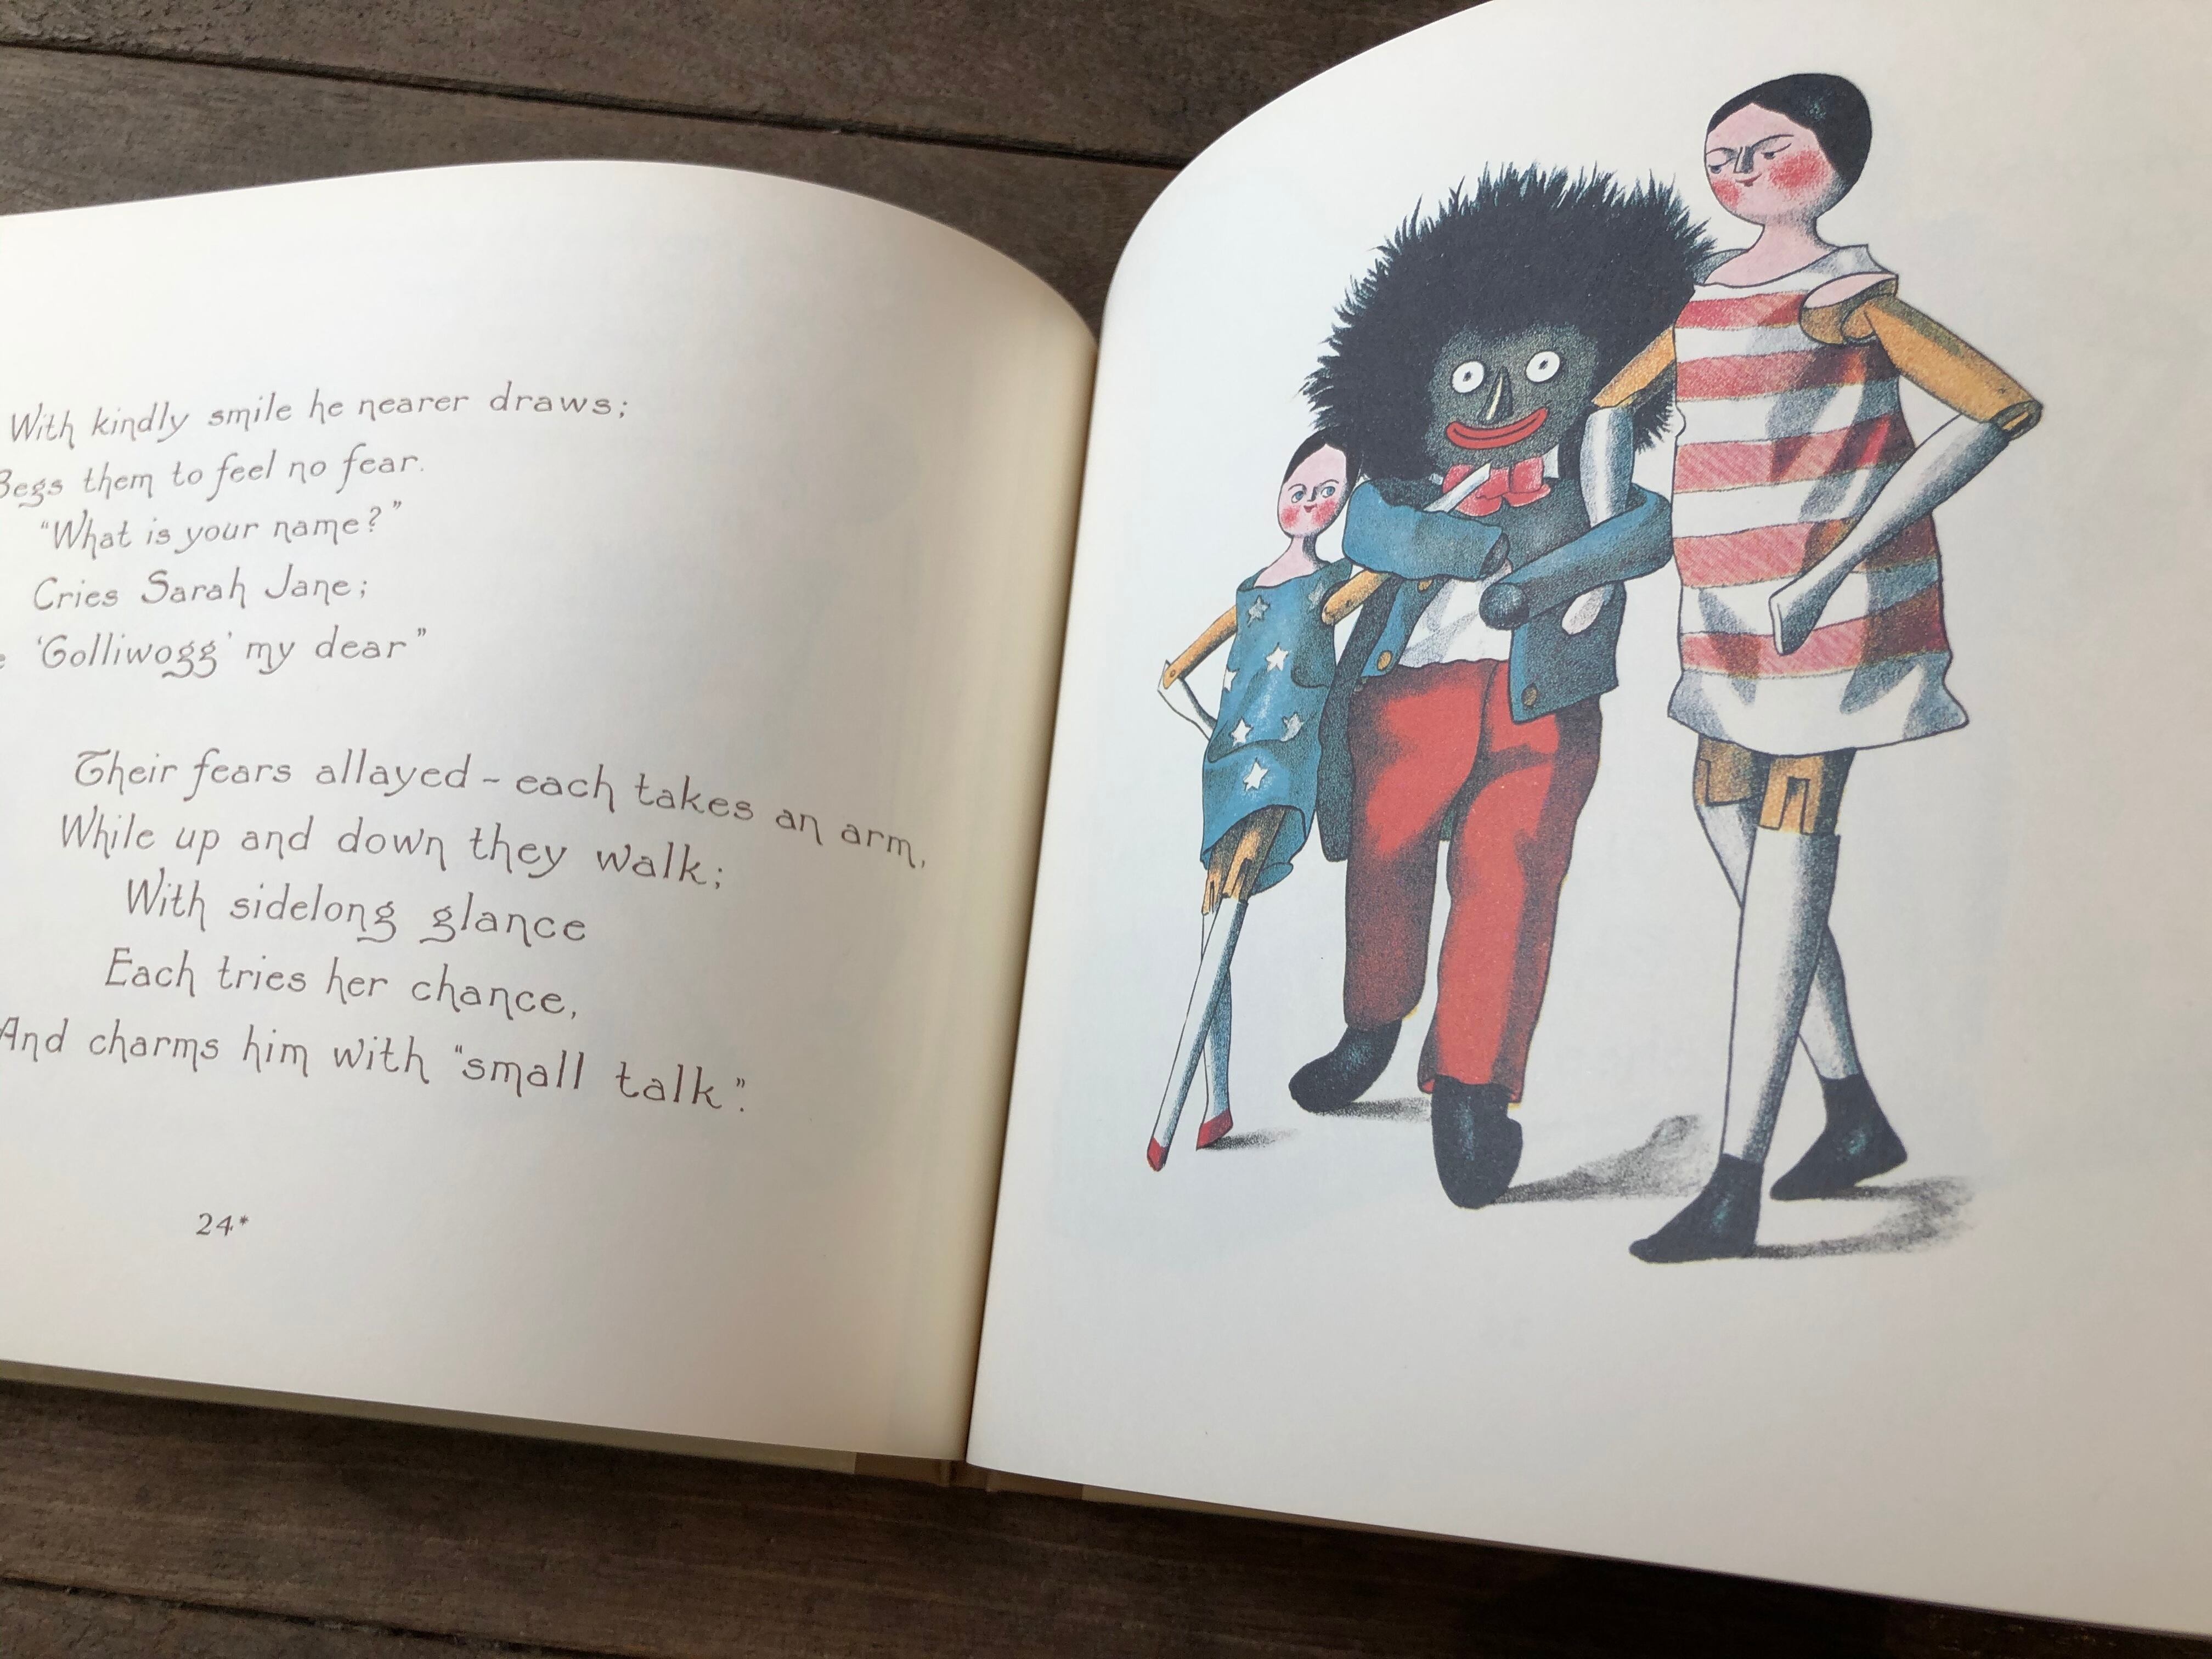 With kindly smile he nearer draws;
Begs them to feel no fear.
"What is your name?"
Cries Sarah Jane;
'Golliwogg' my dear"
Their fears allayed - each takes an arm,
While up and down they walk;
With sidelong glance
Each tries her chance,
And charms him with "small talk".
24*